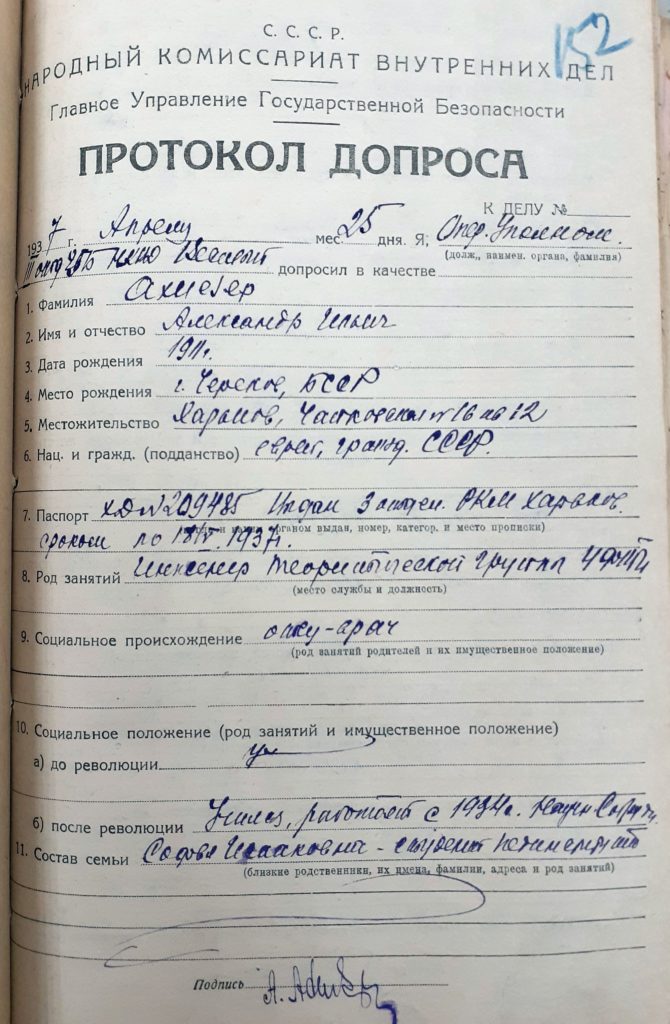 152
С. С. С. Р.
НАРОДНЫЙ КОМИССАРИАТ ВНУТРЕННИХ ДЕЛ
Главное Управление Государственной Безопасности
ПРОТОКОЛ ДОПРОСА
К ДЕЛУ №
1937 г. Апреля мес. 25 дня. Я, Опер. Уполном.
(долж., наимен. органа, фамилия)
допросил в качестве
1. Фамилия Ахиезер
2. Имя и отчество Александр Ильич
3. Дата рождения 1911 г.
4. Место рождения г. Чериков, БССР
5. Местожительство Харьков, 16 кв 12
6. Нац. и гражд. (подданство) еврей, гражд. СССР.
7. Паспорт ХД № 209485 выдан 3 отдел. РКМ Харьков.
органом выдан, номер, категор. и место прописки)
сроком по 1937 г.
8. Род занятий Инженер Теоретической группы УФТИ
(место службы и должность)
9. Социальное происхождение отец-врач
(род занятий родителей и их имущественное положение)
10. Социальное положение (род занятий и имущественное положение)
а) до революции
б) после революции Учился, работает с 1934 г.
11. Состав семьи Софья Исааковна - студент
(близкие родственники, их имена, фамилии, адреса и род занятий)
Подпись А. Ахиезер